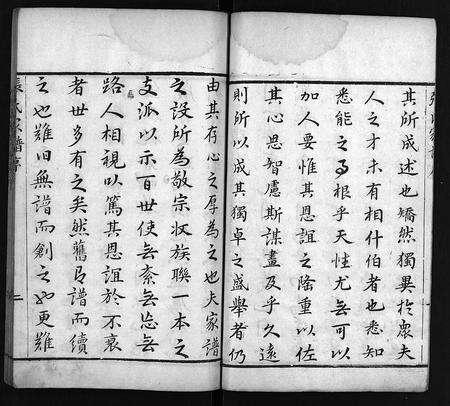 其所成述也矯然獨異於眾夫
人之才未有相什伯者也悉知
悉能之為根乎天性尤無可以
加人要惟其恩誼之隆重以佐
其心思智慮斯謀盡及乎久遠
則所以成其獨卓之盛舉者仍
由其存心之厚為之也夫家譜
之設所為敬宗收族聯一本之
支派以示百世使無紊無忘無
路人相視以篤其恩誼於不衰
者世多有之矣然舊有譜而續
之也難旧無譜而創之也更難
張氏家譜序
二